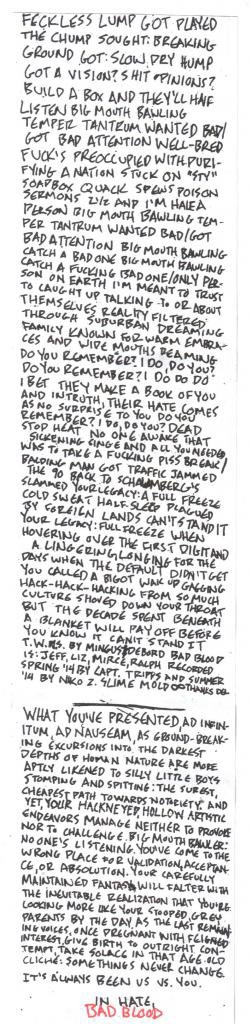 FECKLESS LUMP GOT PLAYED
THE CHUMP SOUGHT: BREAKING
GROUND GOT: SLOW, DRY HUMP
GOT A VISION? SHIT OPINIONS?
BUILD A BOX AND THEY'LL HALF
LISTEN BIG MOUTH BAWLING
TEMPER TANTRUM WANTED BAD/
GOT BAD ATTENTION WELL-BRED
FUCK'S PREOCCUPIED WITH PURI-
FYING A NATION STUCK ON "STY"
SOAPBOX QUACK SPEWS POISON
SERMONS AND I'M HALF A
PERSON BIG MOUTH BAWLING TEM-
PER TANTRUM WANTED BAD/GOT
BAD ATTENTION BIG MOUTH BAWLING
CATCH A BAD ONE BIG MOUTH BAWLING
CATCH A FUCKING BAD ONE/ONLY PER-
SON ON EARTH I'M MEANT TO TRUST
TO CAUGHT UP TALKING TO OR ABOUT
THEMSELVES REALITY FILTERED
THROUGH SUBURBAN DREAMING
FAMILY KNOWN FOR WARM EMBRA-
CES AND WIDE MOUTHS BEAMING
DO YOU REMEMBER? I DO, DO YOU?
DO YOU REMEMBER? I DO DO DO
I BET THEY MAKE A BOOK OF YOU
AND IN TRUTH, THEIR HATE COMES
AS NO SURPRISE TO YOU DO YOU
REMEMBER? I DO, DO YOU? DEAD
STOP HEAT NO ONE AWARE THAT
SICKENING SINGE AND ALL YOU NEEDED
WAS TO TAKE A FUCKING PISS BREAK/
BALDING MAN GOT TRAFFIC JAMMED
THE 90 BACK TO SCHAUMBERG'S
SLAMMED YOUR LEGACY: A FULL FREEZE
COLD SWEAT HALF-SLEEP PLAGUED
BY FOREIGN LANDS CAN'T STAND IT
YOUR LEGACY: FULL FREEZE WHEN
HOVERING OVER THE FIRST DIGIT AND
A LINGERING LONGING FOR THE
DAYS WHEN THE DEFAULT DIDN'T GET
YOU CALLED A BIGOT WAKE UP GAGGING
HACK-HACK-HACKING FROM SO MUCH
CULTURE SHOVED DOWN YOUR THROAT
BUT THE DECADE SPENT BENEATH
A BLANKET WILL PAY OFF BEFORE
YOU KNOW IT CAN'T STAND IT
T.W.I.S. BY MINGUS DEBORD BAD BLOOD
IS: JEFF, LIZ, MIRCE, RALPH RECORDED
SPRING '14 BY CAPT. TRIPPS AND SUMMER
'14 BY NIKO Z. SLIME MOLD THANKS
WHAT YOU'VE PRESENTED, AD INFIN-
ITUM, AD NAUSEAM, AS GROUND-BREAK-
ING EXCURSIONS INTO THE DARKEST
DEPTHS OF HUMAN NATURE ARE MORE
APTLY LIKENED TO SILLY LITTLE BOYS
STOMPING AND SPITTING: THE SUREST,
CHEAPEST PATH TOWARDS NOTORIETY. AND
YET, YOUR HACKNEYED, HOLLOW ARTISTIC
ENDEAVORS MANAGE NEITHER TO PROVOKE
NOR TO CHALLENGE. BIG MOUTH BAWLER:
NO ONE'S LISTENING. YOU'VE COME TO THE
WRONG PLACE FOR VALIDATION, ACCEPTAN-
CE, OR ABSOLUTION. YOUR CAREFULLY
MAINTAINED FANTASY WILL FALTER WITH
THE INEVITABLE REALIZATION THAT YOU'RE
LOOKING MORE LIKE YOUR STOOPED, GREY
PARENTS BY THE DAY. AS THE LAST REMAIN-
ING VOICES, ONCE PREGNANT WITH FEIGNED
INTEREST, GIVE BIRTH TO OUTRIGHT CON-
TEMPT, TAKE SOLACE IN THAT AGE-OLD
CLICHE: SOME THINGS NEVER CHANGE
IT'S ALWAYS BEEN US VS. YOU.
IN HATE,
BAD BLOOD